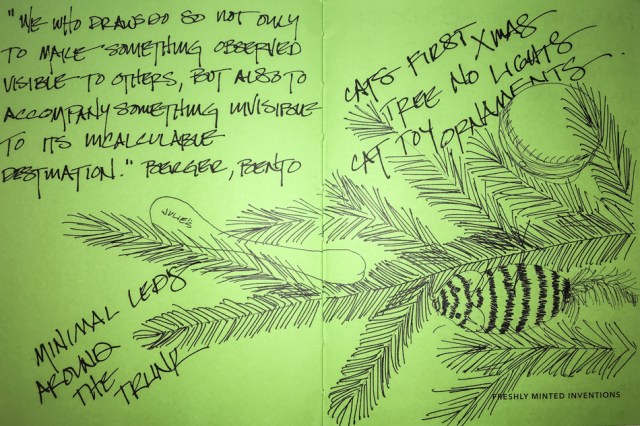 "WE WHO DRAW DO SO NOT ONLY
TO MAKE SOMETHING OBSERVED
VISIBLE TO OTHERS, BUT ALSO TO
ACCOMPANY SOMETHING INVISIBLE
TO ITS INCALCULABLE
DESTINATION." BERGER, BENTO
CATS FIRST XMAS
TREE NO LIGHTS
CAT TOY ORNAMENTS
JULIES
MINIMAL LEDS
AROUND
THE TRUNK
FRESHLY MINTED INVENTIONS